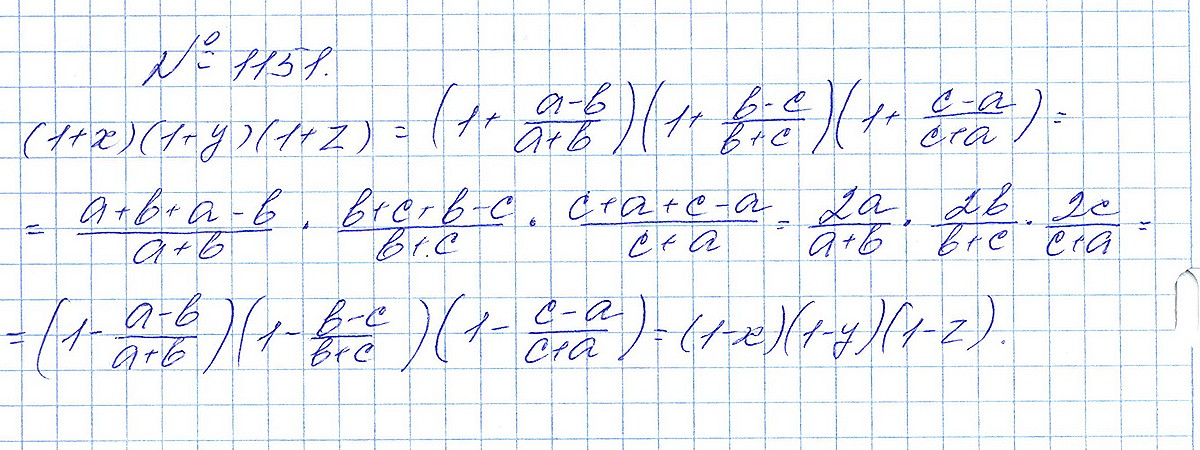 № 1151.
(1+x)(1+y)(1+z) = (1 + (a-b)/(a+b))(1 + (b-c)/(b+c))(1 + (c-a)/(c+a)) =
= (a+b+a-b)/(a+b) · (b+c+b-c)/(b+c) · (c+a+c-a)/(c+a) = 2a/(a+b) · 2b/(b+c) · 2c/(c+a) =
= (1 - (a-b)/(a+b))(1 - (b-c)/(b+c))(1 - (c-a)/(c+a)) = (1-x)(1-y)(1-z).